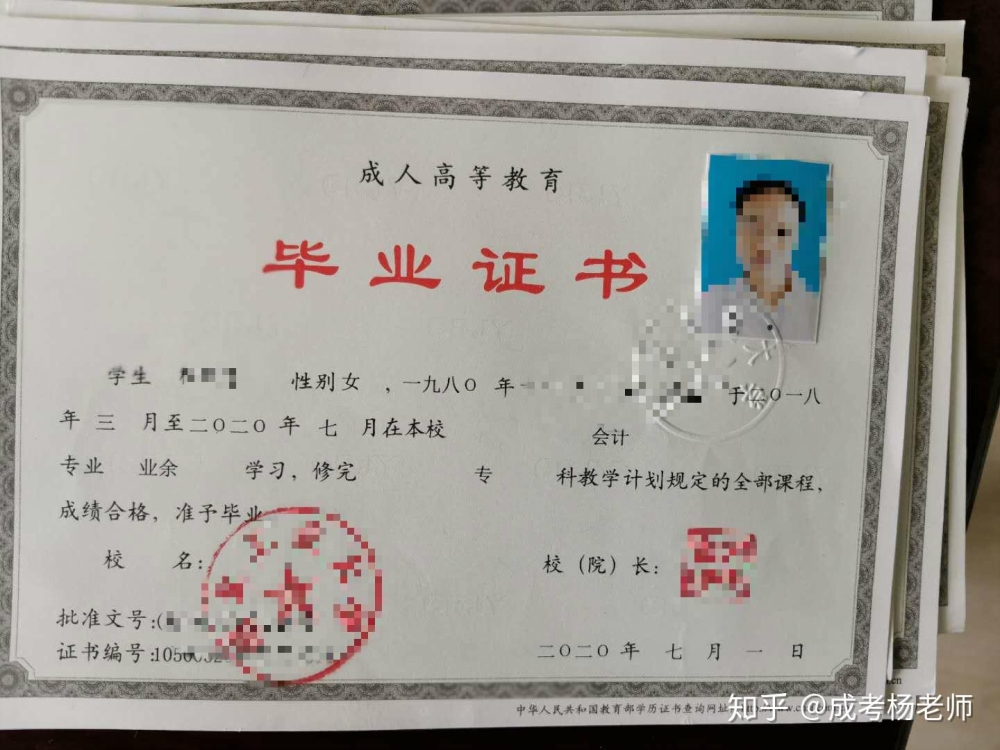 成人高等教育
毕业证书
学生 性别女 ，一九八〇年 于二〇一八
年 三 月至二〇二〇年 七 月在本校 会计
专业 业余 学习，修完 专 科教学计划规定的全部课程，
成绩合格，准予毕业
校 名： 校（院）长：
批准文号:(
证书编号:105
二〇二〇年 七 月 一 日
中华人民共和国教育部学历证书查询网址
知乎 @成考杨老师